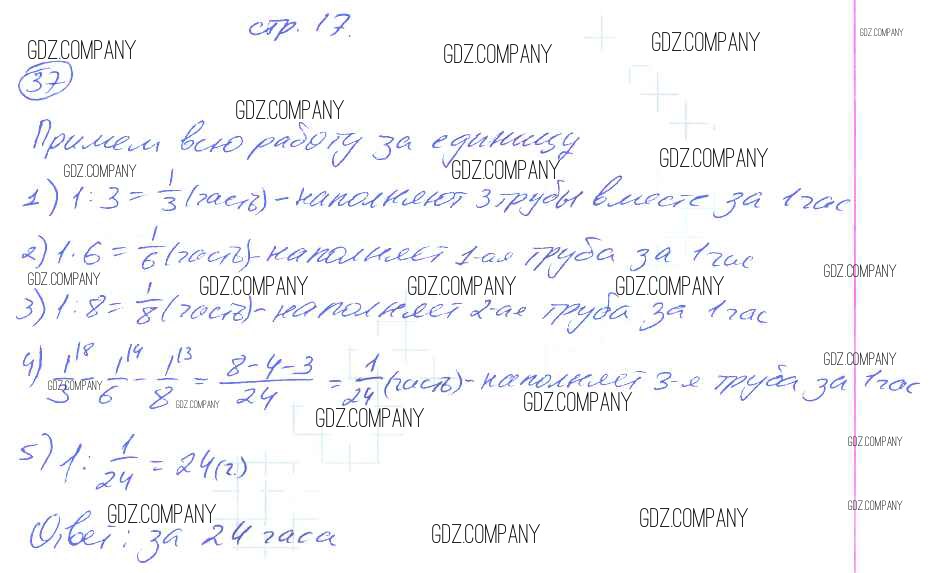 стр. 17.
GDZ.COMPANY GDZ.COMPANY GDZ.COMPANY GDZ.COMPANY
37
GDZ.COMPANY
Примем всю работу за единицу
GDZ.COMPANY GDZ.COMPANY GDZ.COMPANY
1) 1 : 3 = 1/3 (часть) - наполняют 3 трубы вместе за 1 час
2) 1 · 6 = 1/6 (часть) - наполняет 1-ая труба за 1 час
GDZ.COMPANY GDZ.COMPANY GDZ.COMPANY GDZ.COMPANY GDZ.COMPANY
3) 1 : 8 = 1/8 (часть) - наполняет 2-ая труба за 1 час
GDZ.COMPANY
4) 1/3 \8 - 1/6 \4 - 1/8 \3 = 8-4-3/24 = 1/24 (часть) - наполняет 3-я труба за 1 час
GDZ.COMPANY GDZ.COMPANY GDZ.COMPANY GDZ.COMPANY
GDZ.COMPANY
5) 1 : 1/24 = 24 (ч.)
GDZ.COMPANY GDZ.COMPANY GDZ.COMPANY GDZ.COMPANY
Ответ: за 24 часа